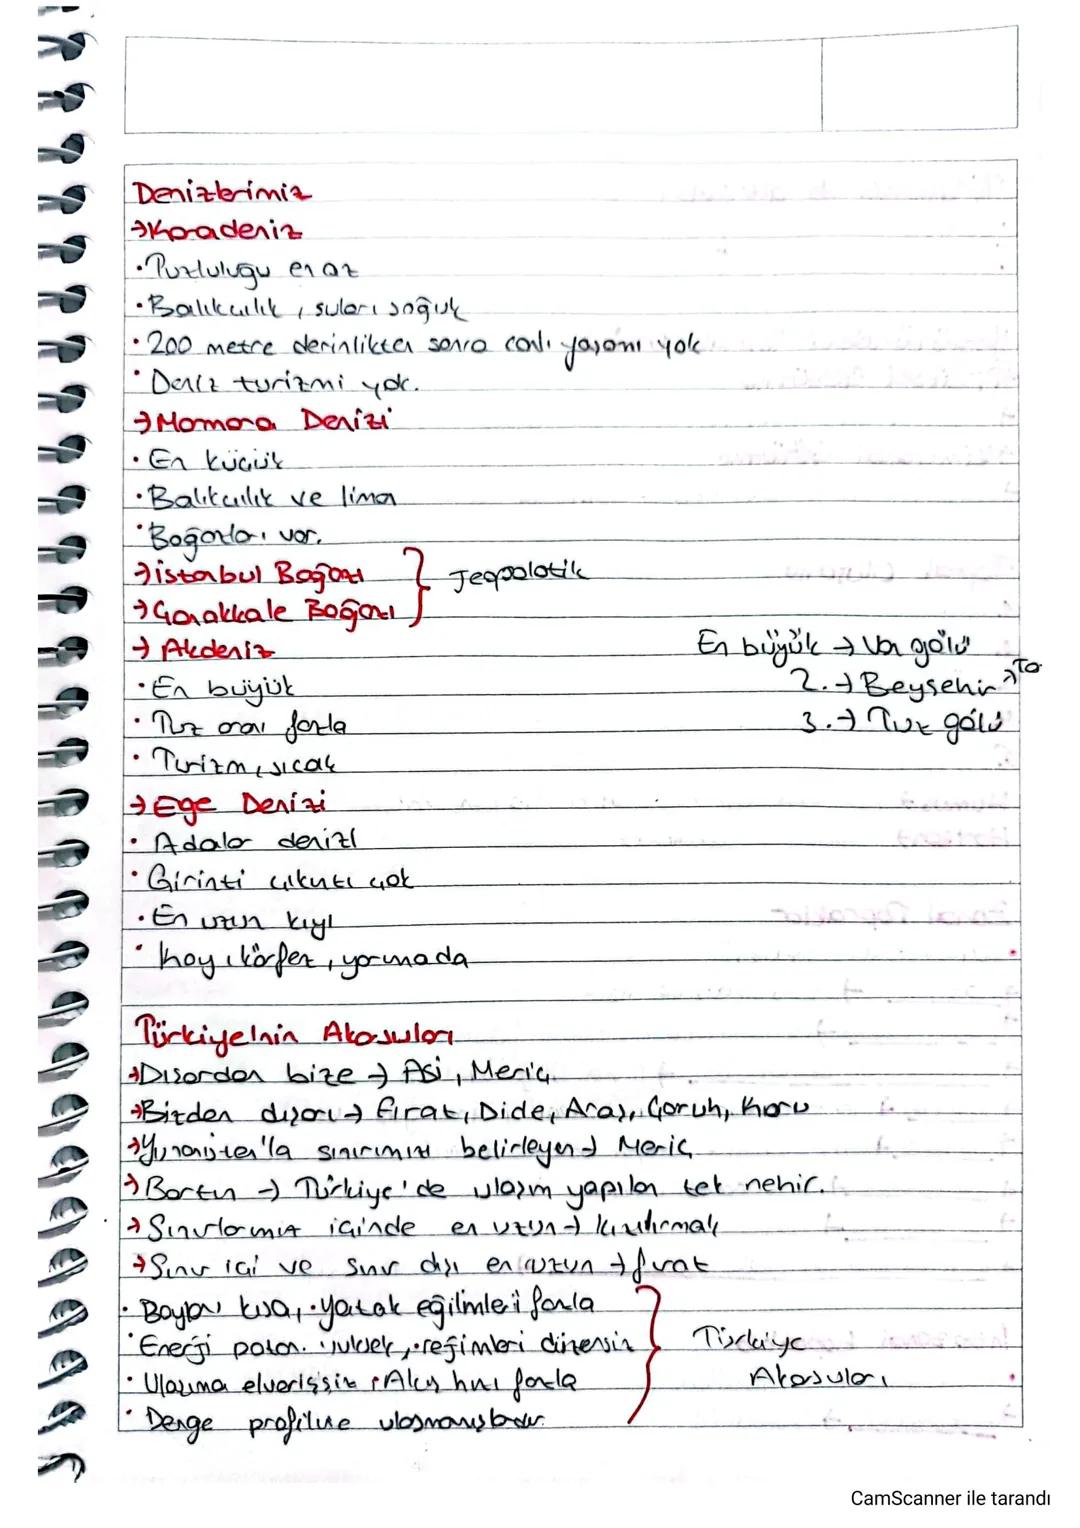 Denizlerimiz
→Karadeniz
•Tuzluluğu en az
•Balıkçılık, suları soğuk
•200 metre derinlikten sonra canlı yaşamı yok
•Deniz turizmi yok.
→Marmara Denizi
•En küçük
•Balıkçılık ve liman
•Boğazları var.
→istanbul Boğazı
→Çanakkale Boğazı } Jeopolotik
→Akdeniz
•En büyük
•Tuz oranı fazla
•Turizm, sıcak
En büyük → Van gölü
2.→ Beyşehir
3.→ Tuz gölü
→Ege Denizi
•Adalar denizi
•Girinti çıkıntı çok
•En uzun kıyı
•koy, körfez, yarımada
Türkiye'nin Akarsuları
→Dışardan bize → Asi, Meriç
→Bizden dışarı → fırat, Dicle, Aras, Çoruh, Kura
→Yunanistan'la sınırımızı belirleyen → Meriç
→Bartın → Türkiye'de ulaşım yapılan tek nehir.
→Sınırlarımız içinde en uzun → kızılırmak
→Sınır içi ve sınır dışı en uzun → fırat
•Boyları kısa, •yatak eğilimleri fazla
•Enerji potan. yüksek, •rejimleri düzensiz
•Ulaşıma elverişsiz •Akış hızı fazla
•Denge profiline ulaşmamışlardır.
} Türkiye
Akarsuları
CamScanner ile tarandı